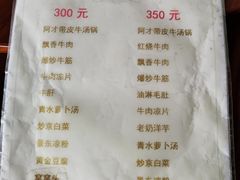 300 元
阿才带皮牛汤锅
飘香牛肉
爆炒牛筋
牛肉凉片
牛肝
青水萝卜汤
炒京白菜
景东凉粉
黄金豆腐
窝窝头
350 元
阿才带皮牛汤锅
红烧牛肉
飘香牛肉
爆炒牛筋
油淋毛肚
牛肉凉片
老奶洋芋
青水萝卜汤
炒京白菜
景东凉粉